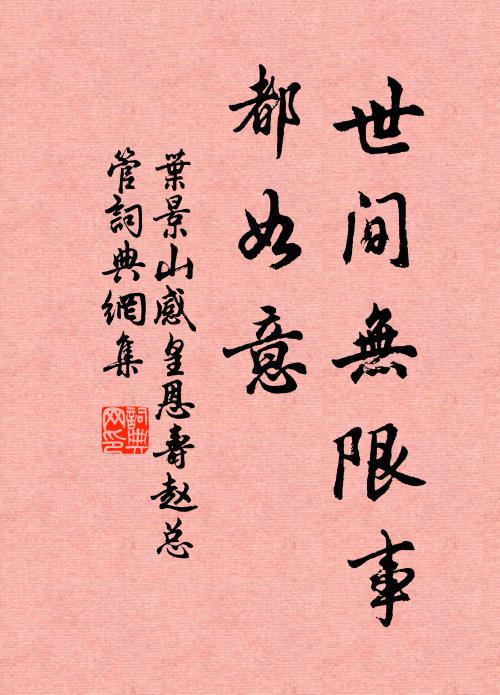 世间無限事
都如意
葉景山感皇恩壽赵总
管詞典網集
詞典
网印